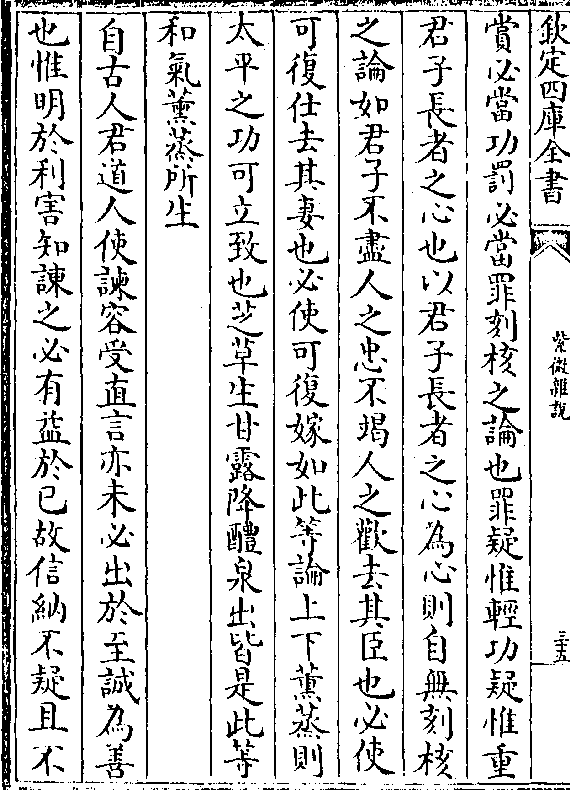 欽定四庫全書
紫微雜說
三五
賞必當功罰必當罪刻核之論也罪疑惟輕功疑惟重
君子長者之心也以君子長者之心為心則自無刻核
之論如君子不盡人之忠不竭人之歡去其臣也必使
可復仕去其妻也必使可復嫁如此等論上下薰蒸則
太平之功可立致也芝草生甘露降醴泉出皆是此等
和氣薰蒸所生
自古人君道人使諫容受直言亦未必出於至誠為善
也惟明於利害知諫之必有益於已故信納不疑且不